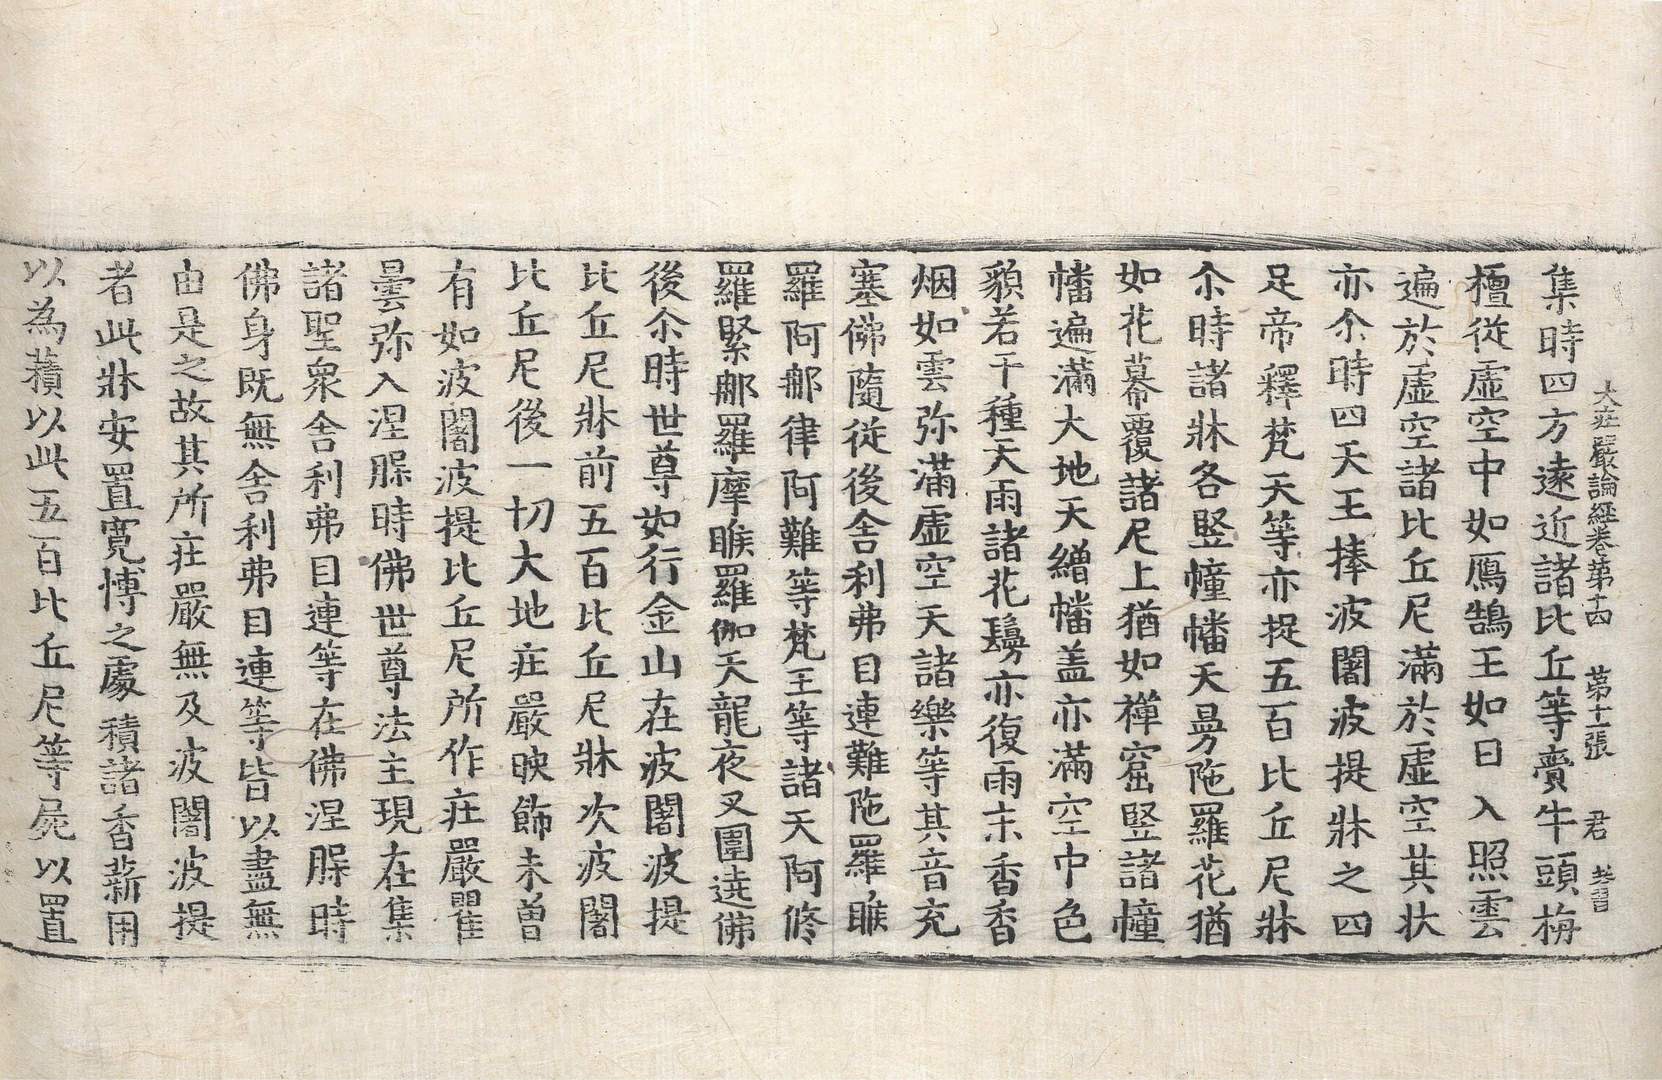 大庄嚴論經卷第十四 第十二張 君
集時四方遠近諸比丘等賷牛頭栴
檀從虛空中如鴈鵠王如日入照雲
遍於虛空諸比丘尼滿於虛空其狀
亦尒時四天王捧波闍波提牀之四
足帝釋梵天等亦捉五百比丘尼牀
尒時諸牀各竪幢幡天曼陁羅花猶
如花幕覆諸尼上猶如禪窟竪諸幢
幡遍滿大地天繒幡盖亦滿空中色
貌若干種天雨諸花鬘亦復雨末香香
烟如雲弥滿虛空天諸樂等其音充
塞佛隨從後舍利弗目連難陁羅睺
羅阿㝹律阿難等梵王等諸天阿修
羅緊那羅摩睺羅伽天龍夜叉圍遶佛
後尒時世尊如行金山在波闍波提
比丘尼牀前五百比丘尼牀次波闍
比丘尼後一切大地庄嚴映飾未曾
有如波闍波提比丘尼所作庄嚴瞿
曇弥入涅脲時佛世尊法主現在集
諸聖衆舍利弗目連等在佛涅脲時
佛身既無舍利弗目連等皆以盡無
由是之故其所庄嚴無及波闍波提
者此牀安置寬博之處積諸香薪用
以為𧂐以此五百比丘尼等屍以置